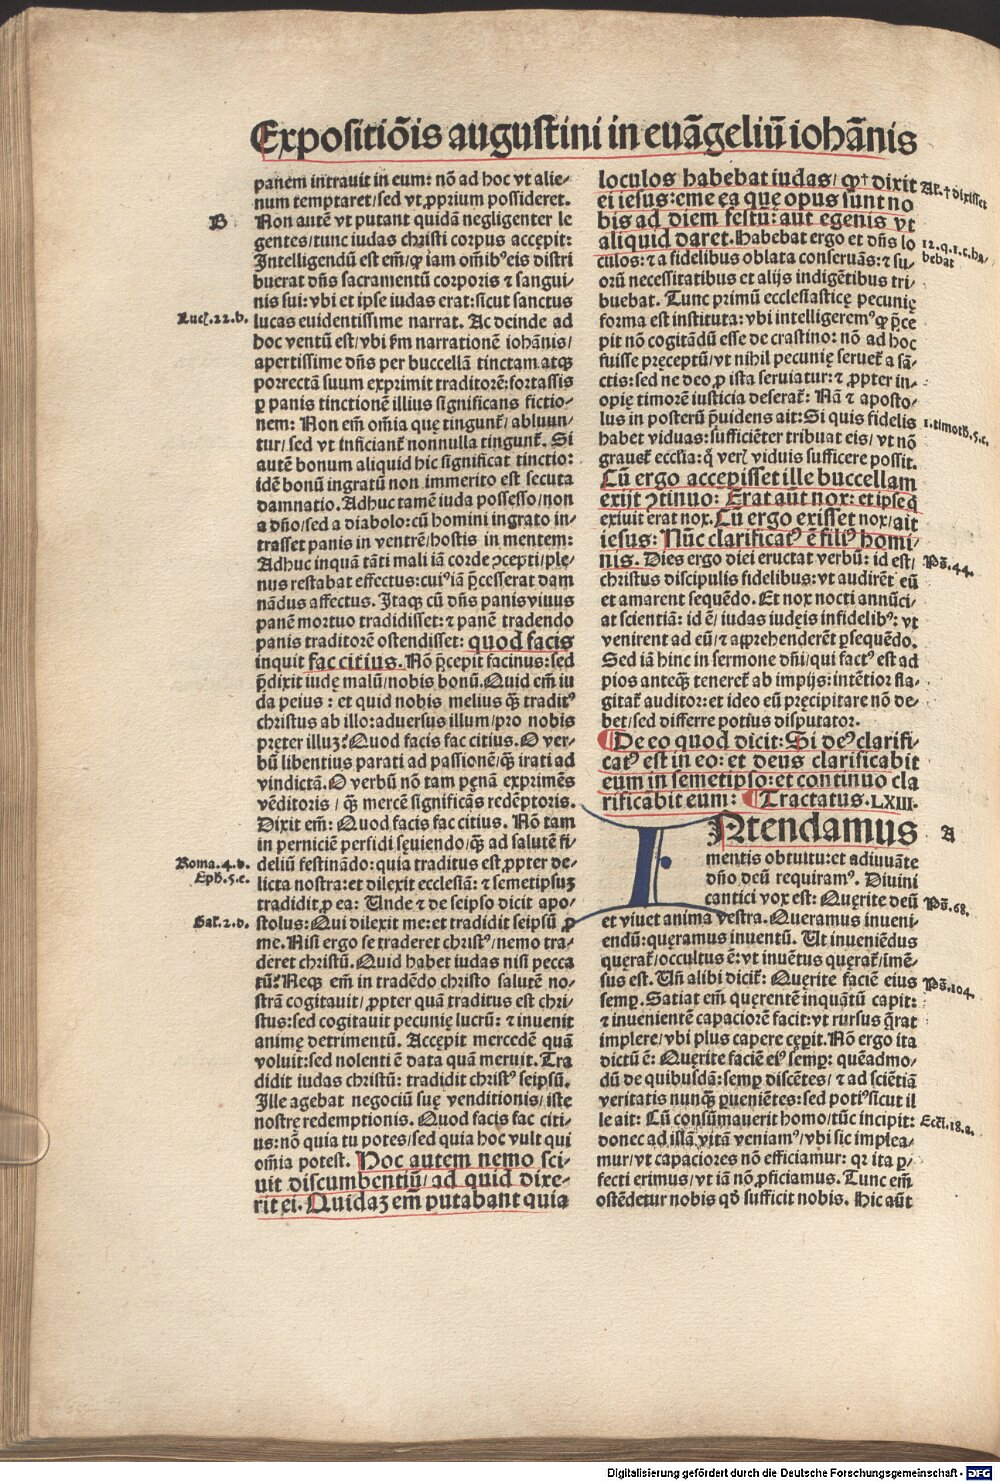 Expositiōis augustini in euāgeliū iohānis
panem intrauit in eum: nō ad hoc vt alie⸗
num temptaret/sed vt ꝓprium possideret.
B
Non autē vt putant quidā negligenter le
gentes/tunc iudas christi corpus accępit:
Intelligendū est em̄/ꝙ iam om̄ibꝰeis distri
buerat dn̄s sacramentū corporis ⁊ sangui⸗
nis sui: vbi et ipse iudas erat:sicut sanctus
Luc̄.22.b.
lucas euidentissime narrat. Ac deinde ad
hoc ventū est/vbi ẜm narrationē iohānis/
apertissime dn̄s per buccellā tinctam atqꝫ
porrectā suum exprimit traditorē:fortassis
ꝑ panis tinctionē illius significans fictio⸗
nem: Non em̄ om̄ia quę tingunt̄/abluun⸗
tur/sed vt inficiant̄ nonnulla tingunt̄. Si
autē bonum aliquid hic significat tinctio:
idē bonū ingratū non immerito est secuta
damnatio. Adhuc tamē iuda possesso/non
a dn̄o/sed a diabolo:cū homini ingrato in⸗
trasset panis in ventrē/hostis in mentem:
Adhuc inquā tāti mali iā corde ꝯcepti/ple⸗
nus restabat effectus:cuiꝰiā p̄cesserat dam
nādus affectus. Itaqꝫ cū dn̄s panis viuus
panē mortuo tradidisset: ⁊ panē tradendo
panis traditorē ostendisset: quod facis
inquit fac citius. Nō p̄cepit facinus:sed
p̄dixit iudę malū/nobis bonū. Quid em̄ iu
da peius : et quid nobis melius q̄ꝫ traditꝰ
christus ab illo:aduersus illum/pro nobis
pręter illuꝫ? Quod facis fac citius. O ver⸗
bū libentius parati ad passionē/q̄ꝫ irati ad
vindictā. O verbū nō tam pęnā exprimēs
vēditoris / q̄ꝫ mercē significās redēptoris.
Dixit em̄: Quod facis fac citius. Nō tam
in perniciē perfidi sęuiendo/q̄ꝫ ad salutē fi⸗
Roma.4.d.
deliū festinādo: quia traditus est ꝓpter de⸗
Eph̄.5.e.
licta nostra:et dilexit ecclesiā: ⁊ semetipsuꝫ
tradidit ꝓ ea: Unde ⁊ de seipso dicit apo⸗
Gal̄.2.d.
stolus: Qui dilexit me: et tradidit seipsū ꝓ
me. Nisi ergo se traderet christꝰ/nemo tra⸗
deret christū. Quid habet iudas nisi pecca
tū? Neqꝫ em̄ in tradēdo christo salutē no⸗
strā cogitauit/ꝓpter quā traditus est chri⸗
stus:sed cogitauit pecunię lucrū: ⁊ inuenit
animę detrimentū. Accępit mercedē quā
voluit:sed nolenti ē data quā meruit. Tra
didit iudas christū: tradidit christꝰ seipsū.
Ille agebat negociū suę venditionis/iste
nostrę redemptionis. Quod facis fac citi⸗
us: nō quia tu potes/sed quia hoc vult qui
om̄ia potest. Hoc autem nemo sci⸗
uit discumbentiū/ad quid dixe⸗
rit ei. Quidaꝫ em̄ putabant quia
loculos habebat iudas/ ꝙ† dixit
Al.† dixisset
ei iesus: eme ea quę opus sunt no
bis ad diem festū: aut egenis vt
aliquid daret. Habebat ergo et dn̄s lo
12.q.1.c.ha⸗
bebat
culos: ⁊ a fidelibus oblata conseruās: ⁊ su⸗
orū necessitatibus et alijs indigētibus tri⸗
buebat. Tunc primū ecclesiasticę pecunię
forma est instituta: vbi intelligeremꝰ ꝙ p̄ce
pit nō cogitādū esse de crastino: nō ad hoc
fuisse pręceptū/vt nihil pecunię seruet̄ a sā⸗
ctis: sed ne deo ꝓ ista seruiatur: ⁊ ꝓpter in⸗
opię timorē iusticia deserat̄: Nā ⁊ aposto⸗
lus in posterū p̄uidens ait: Si quis fidelis
1.timoth̄.5.c.
habet viduas: sufficiēter tribuat eis/ vt nō
grauet̄ ecclīa: q̄ ver̄ viduis sufficere possit.
Cū ergo accepisset ille buccellam
exijt ꝯtinuo: Erat aūt nox: et ipse q̄
exiuit erat nox. Cū ergo exisset nox/ait
iesus: Nūc clarificatꝰ ē filiꝰ homi⸗
nis. Dies ergo diei eructat verbū: id est/
Ps̄.44.
christus discipulis fidelibus: vt audirēt eū
et amarent sequēdo. Et nox nocti annūci⸗
at scientiā: id ē/ iudas iudęis infidelibꝰ: vt
venirent ad eū/⁊ apprehenderēt ꝑsequēdo.
Sed iā hinc in sermone dn̄i/qui factꝰ est ad
pios anteq̄ꝫ teneret̄ ab impijs: intētior fla⸗
gitat̄ auditor: et ideo eū pręcipitare nō de⸗
bet/sed differre potius disputator.
¶ De eo quod dicit: Si deꝰ clarifi⸗
catꝰ est in eo: et deus clarificabit
eum in semetipso: et continuo cla
rificabit eum: ¶ Tractatus. LXIII.
INtendamus
A
mentis obtuitu: et adiuuāte
dn̄o deū requiramꝰ. Diuini
cantici vox est: Quęrite deū
Ps̄.68.
et viuet anima vestra. Queramus inueni⸗
endū: quęramus inuentū. Ut inueniēdus
quęrat̄/occultus ē: vt inuētus quęrat̄/imē⸗
sus est. Un̄ alibi dicit̄: Quęrite faciē eius
Ps̄.104.
semꝑ. Satiat em̄ quęrentē inquātū capit:
⁊ inuenientē capaciorē facit: vt rursus q̄rat
implere/vbi plus capere cępit. Nō ergo ita
dictū ē: Quęrite faciē eiꝰ semꝑ: quēadmo⸗
dū de quibusdā: semꝑ discētes/ ⁊ ad sciētiā
veritatis nunq̄ꝫ ꝑueniētes: sed potiꝰsicut il
le ait: Cū consūmauerit homo/tūc incipit:
Ecci.18.a.
donec ad illā vitā veniamꝰ/vbi sic implea⸗
mur/vt capaciores nō efficiamur: qꝛ ita ꝑ⸗
fecti erimus/vt iā nō ꝓficiamus. Tunc em̄
ostēdetur nobis qd̄ sufficit nobis. Hic aūt
Digitalisierung gefördert durch die Deutsche Forschungsgemeinschaft - DFG